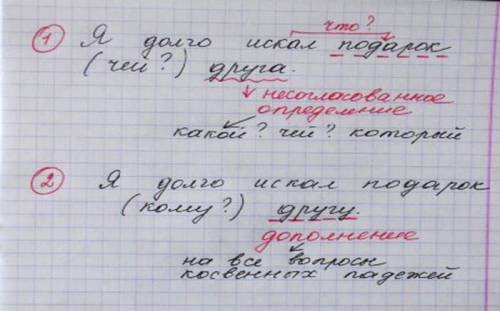 что?
① Я долго искал подарок
(чей?) друга.
несогласованное
определение
какой? чей? который
② Я долго искал подарок
(кому?) другу.
дополнение
на все вопросы
косвенных падежей